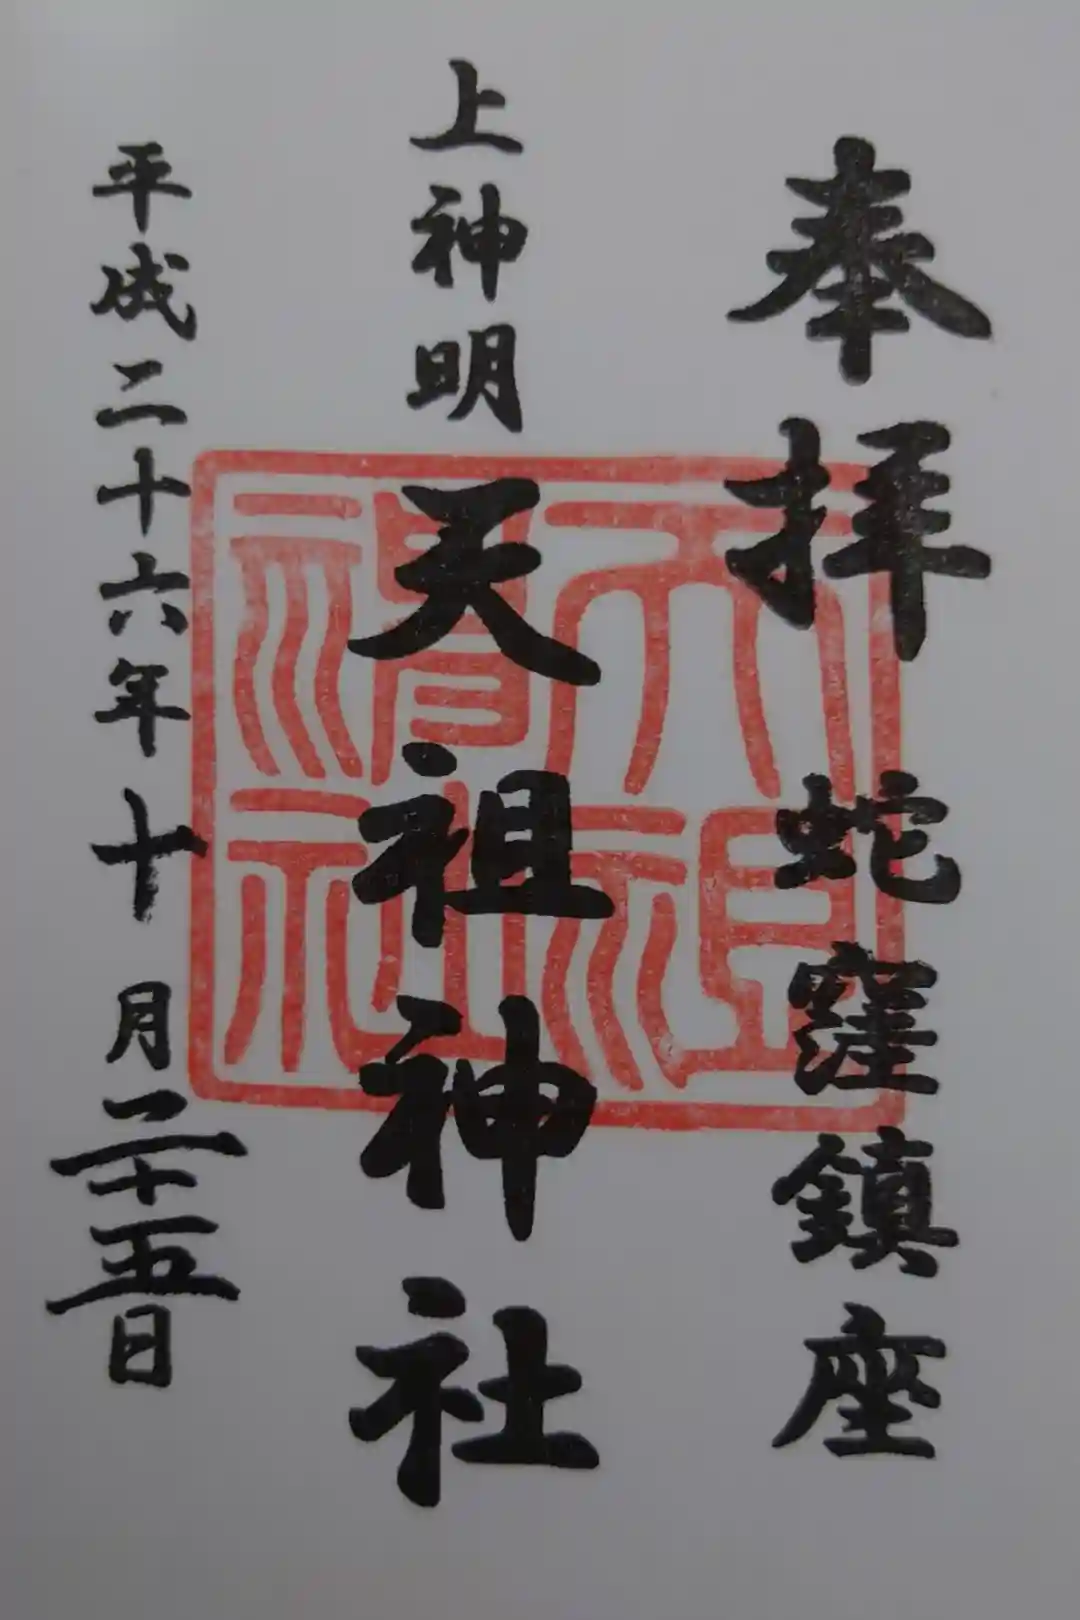 奉拝 蛇窪鎮座
上神明 天祖神社
平成二十六年十月二十五日
天祖神社